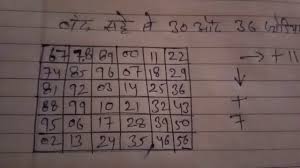 30 और 36
67 78 89 00 11 22 → + 11
74 85 96 07 18 29 ↓
81 92 03 14 25 36 +
88 99 10 21 32 43 7
95 06 17 28 39 50
02 13 24 35 46 56